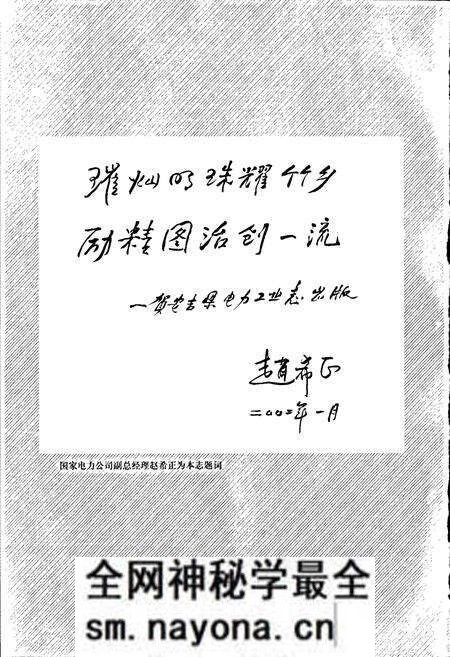 璀灿明珠耀竹乡
励精图治创一流
—贺安吉县电力工业志出版
赵希正
二〇〇二年一月
国家电力公司副总经理赵希正为本志题词
全网神秘学最全
sm.nayona.cn